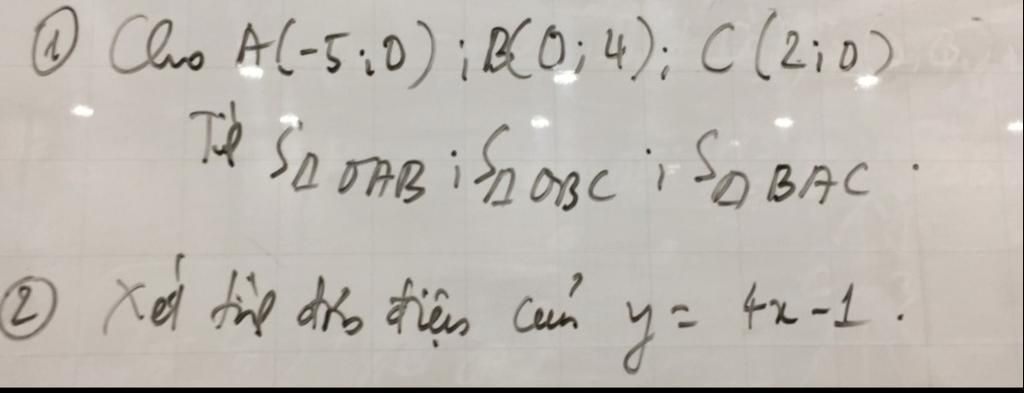 ① Cho A(-5;0); B(0;4); C(2;0)
Tính S△OAB; S△OBC; S△BAC.
② Xét tính đồng biến của y = 4x-1.